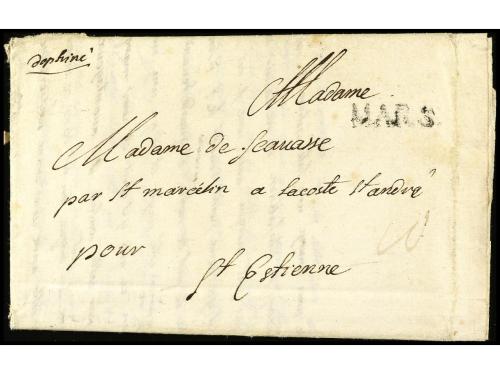 dophiné
Madame
MARS.
Madame de Scauasse
par st marcelin a lacoste st andré
pour
st Estienne